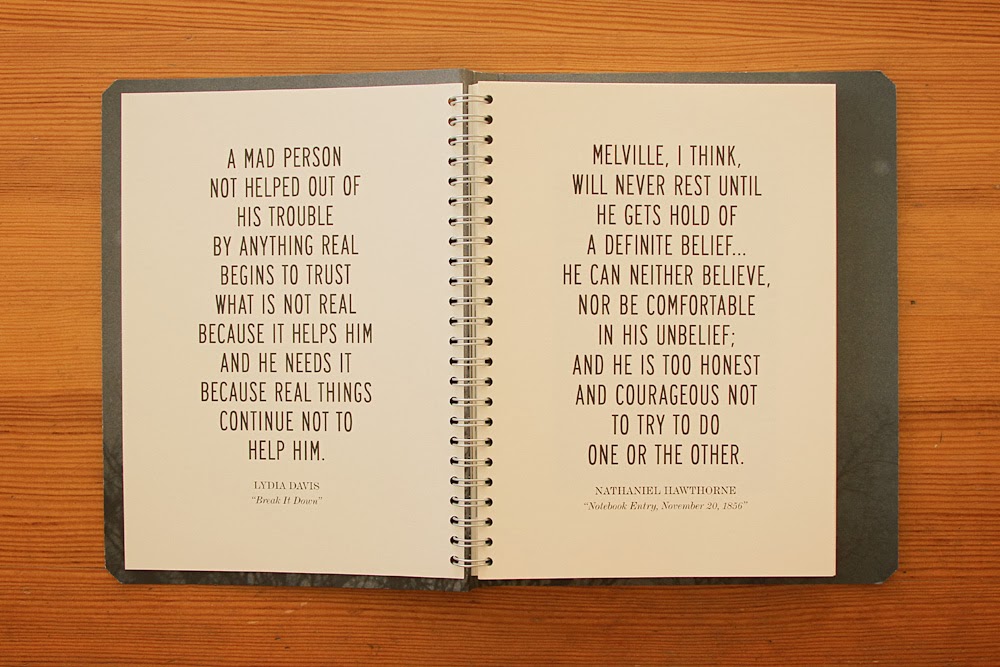 A MAD PERSON
NOT HELPED OUT OF
HIS TROUBLE
BY ANYTHING REAL
BEGINS TO TRUST
WHAT IS NOT REAL
BECAUSE IT HELPS HIM
AND HE NEEDS IT
BECAUSE REAL THINGS
CONTINUE NOT TO
HELP HIM.
LYDIA DAVIS
“Break It Down”
MELVILLE, I THINK,
WILL NEVER REST UNTIL
HE GETS HOLD OF
A DEFINITE BELIEF...
HE CAN NEITHER BELIEVE,
NOR BE COMFORTABLE
IN HIS UNBELIEF;
AND HE IS TOO HONEST
AND COURAGEOUS NOT
TO TRY TO DO
ONE OR THE OTHER.
NATHANIEL HAWTHORNE
“Notebook Entry, November 20, 1856”